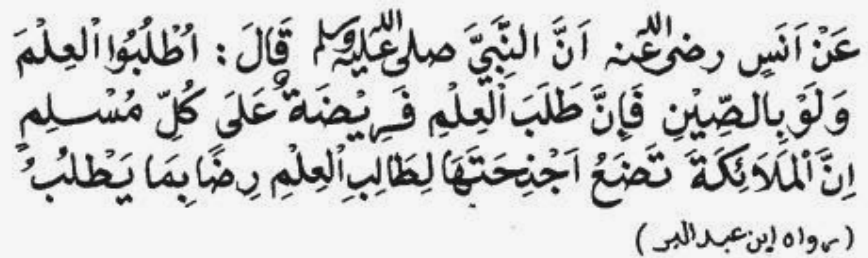 عَنْ اَنَسٍ رضى الله عنه اَنَّ النَّبِيَّ صلى الله عليه وسلم قَالَ: اُطْلُبُوا الْعِلْمَ
وَلَوْ بِالصِّيْنِ فَإِنَّ طَلَبَ الْعِلْمِ فَرِيْضَةٌ عَلَى كُلِّ مُسْلِمٍ
اِنَّ الْمَلَائِكَةَ تَضَعُ اَجْنِحَتَهَا لِطَالِبِ الْعِلْمِ رِضًا بِمَا يَطْلُبُ
(رواه ابن عبد البر)